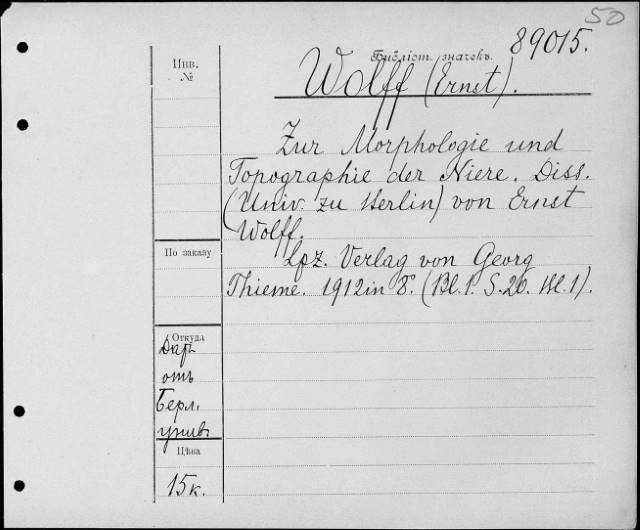 50
89015.
Библіот. значекъ.
Инв.
№
Wolff (Ernst).
Zur Morphologie und
Topographie der Niere. Diss.
(Univ. zu Berlin) von Ernst
Wolff.
По заказу
Lpz. Verlag von Georg
Thieme. 1912 in 8°. (Bl. 1. S. 20. Bl. 1).
Откуда
Даръ
отъ
Берл.
унив.
Цѣна
15 к.